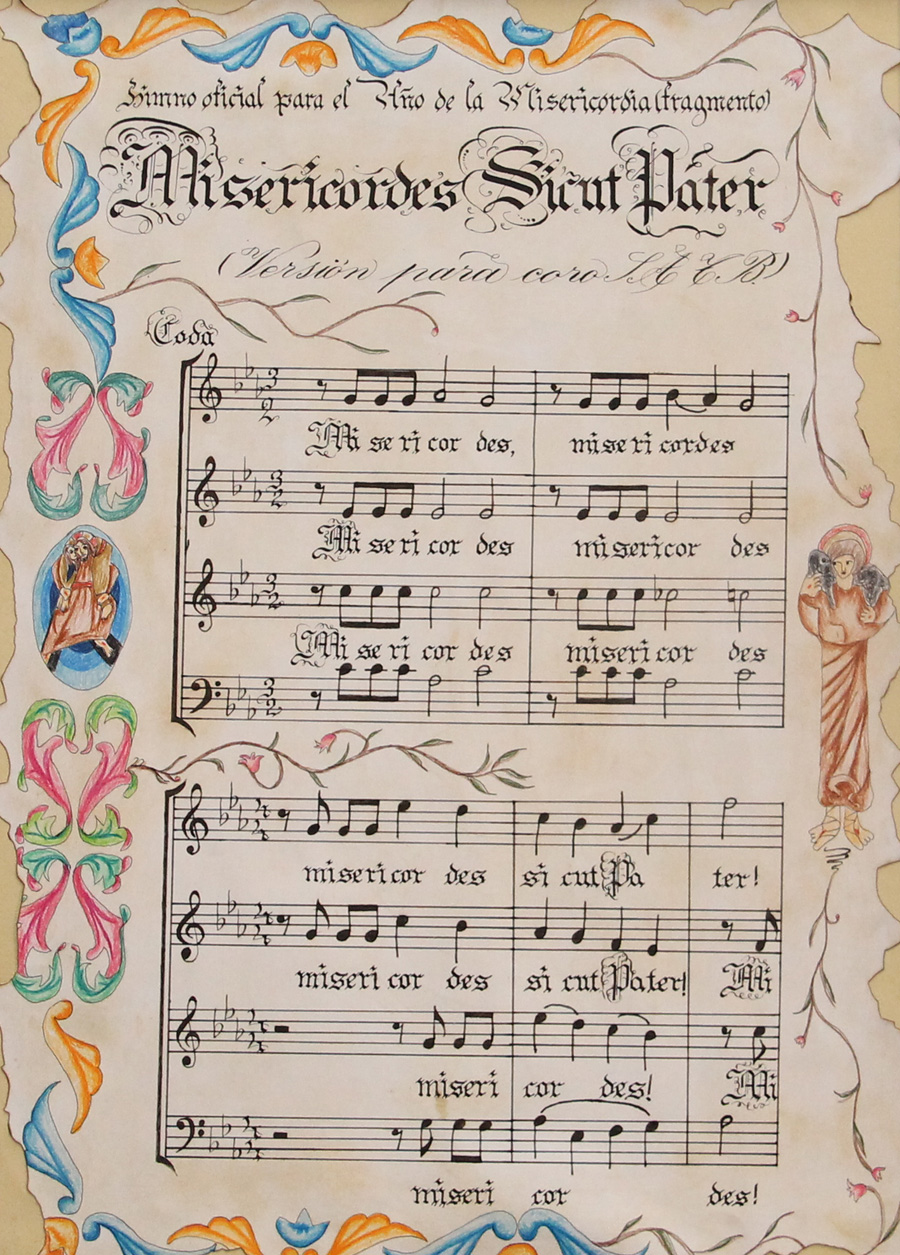 Himno oficial para el Año de la Misericordia (fragmento)
Misericordes Sicut Pater
(Versión para coro S.A.T.B.)
Coda
3 2
Mi se ri cor des, mise ri cordes
3 2
Mi se ri cor des misericor des
3 2
Mi se ri cor des miseri cor des
3 2
misericor des si cut Pa ter!
miseri cor des si cut Pater! Mi
miseri cor des! Mi
miseri cor des!